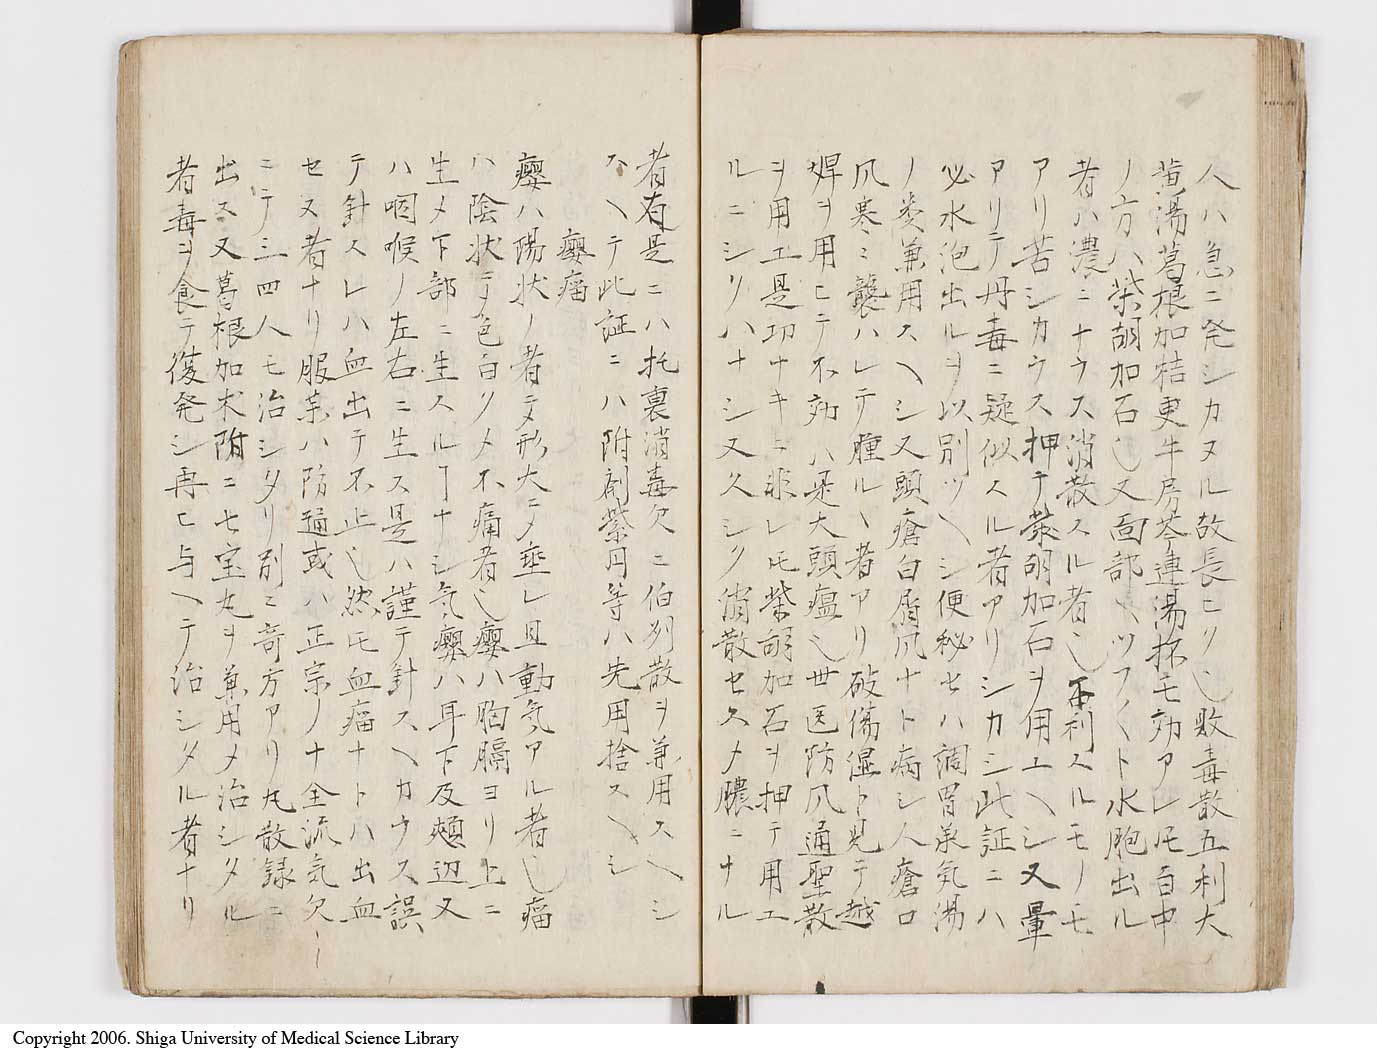 人ハ急ニ発シカヌル故長ヒク也敗毒散五利大
黄湯葛根加桔更牛房芩連湯抔モ効アレ𪜈百中
ノ方ハ柴胡加石也又面部ヘツフ〱ト水胞出ル
者ハ濃ニナラス消散スル者也不利スルモノモ
アリ苦シカラス押テ柴胡加石ヲ用ユヘシ又暈
アリテ丹毒ニ疑似スル者アリシカシ此証ニハ
必水泡出ルヲ以別ツヘシ便秘セハ調胃承気湯
ノ類兼用スヘシ又頭瘡白屑風ナト病シ人瘡口
風寒ニ襲ハレテ腫ルヽ者アリ破傷湿ト見テ越
婢ヲ用ヒテ不効ハ是大頭瘟也世医防風通聖散
ヲ用ユ是功ナキニ非レ𪜈柴胡加石ヲ押テ用ユ
ルニシクハナシ又久シク消散セスメ膿ニナル
者有是ニハ托裏消毒欠ニ伯州散ヲ兼用スヘシ
ヘテ此証ニハ附剤紫円等ハ先用捨スヘシ
癭瘤
癭ハ陽状ノ者ニテ形大ニメ垂レ且動気アル者也瘤
ハ陰状ニテ色白クメ不痛者也癭ハ胸膈ヨリ上ニ
生メ下部ニ生スルヿナシ気癭ハ耳下及頰辺又
ハ咽喉ノ左右ニ生ス是ハ謹テ針スヘカラス誤
テ針スレハ血出テ不止也然𪜈血瘤ナトハ出血
セヌ者ナリ服薬ハ防通或ハ正宗ノ十全流気欠
ニテ三四人モ治シタリ別ニ奇方アリ丸散録ニ
出ス又葛根加朮附ニ七宝丸ヲ兼用メ治シタル
者毒ヲ食テ復発シ再ヒ与ヘテ治シタル者ナリ
Copyright 2006. Shiga University of Medical Science Library